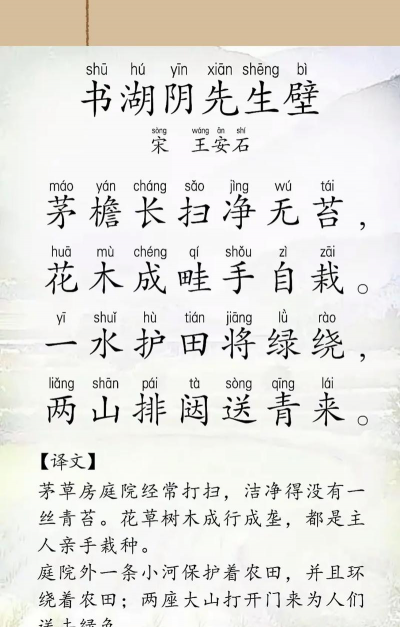 shū hú yīn xiān shēng bì
书湖阴先生壁
sòng wáng ān shí
宋 王安石
máo yán cháng sǎo jìng wú tái
茅檐长扫净无苔，
huā mù chéng qí shǒu zì zāi
花木成畦手自栽。
yī shuǐ hù tián jiāng lǜ rào
一水护田将绿绕，
liǎng shān pái tà sòng qīng lái
两山排闼送青来。
【译文】
茅草房庭院经常打扫，洁净得没有一
丝青苔。花草树木成行成垄，都是主
人亲手栽种。
庭院外一条小河保护着农田，并且环
绕着农田；两座大山打开门来为人们
送上绿色